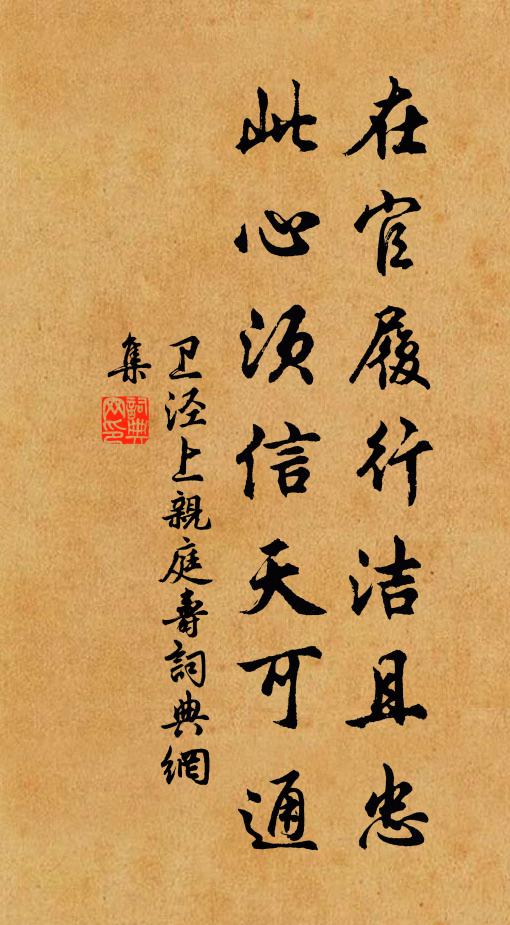 在官履行洁且忠
此心须信天可通
卫泾上親庭壽詞典網
集
詞典
网印